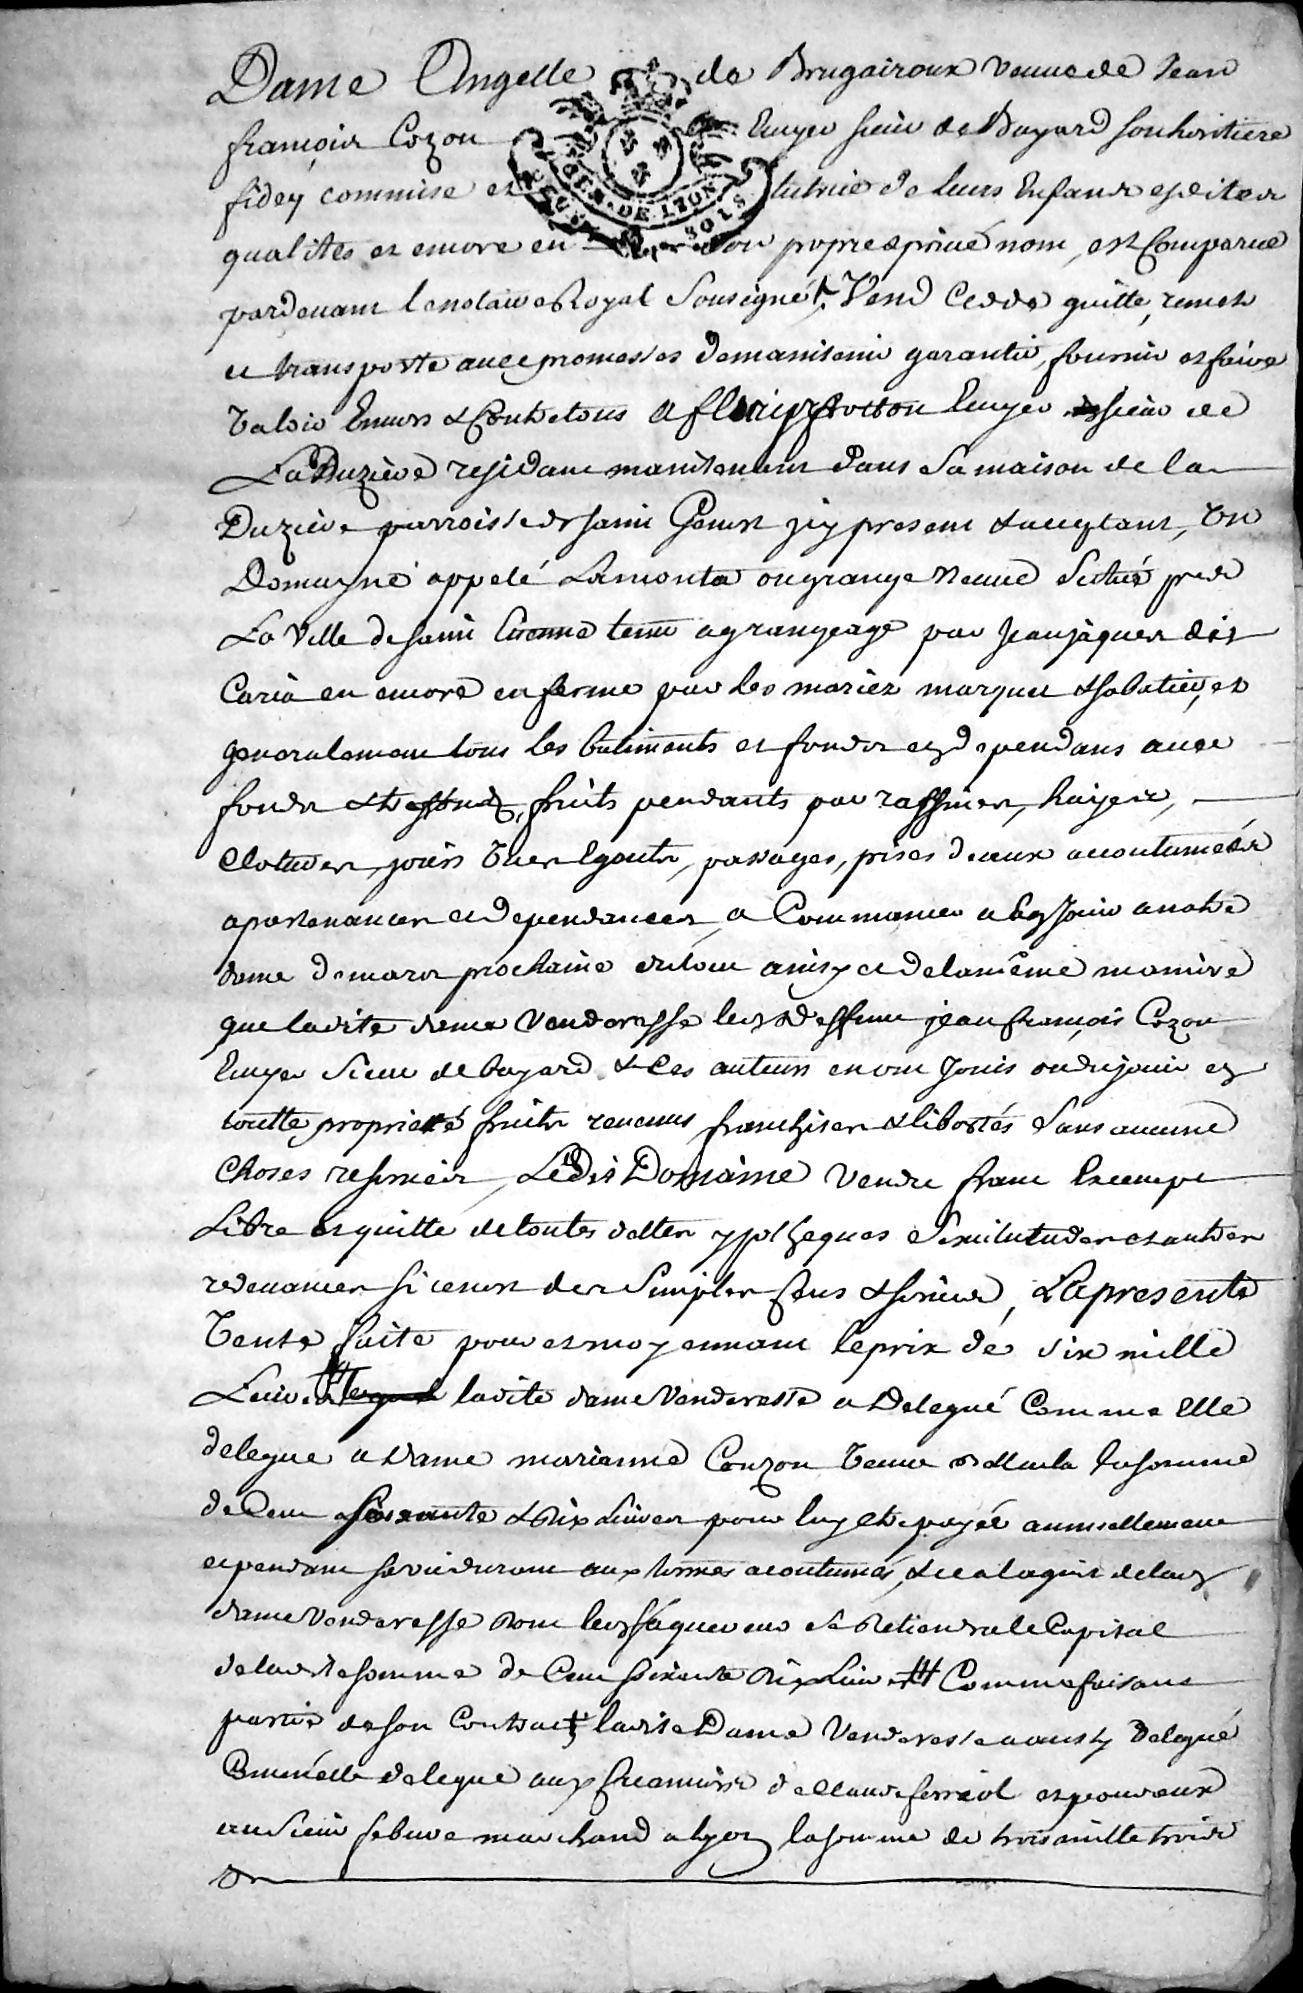 Dame Angelle de Brugairoux veuve de Jean
françois Cozon Ecuyer sieur de Bayard son heritiere
fidey commise et tutrice de leurs Enfans esdites
qualités et encore en son propre & privé nom, est Comparue
pardevant le notaire Royal Sousigné, Vend Cedde quitte, remet
et transporte avec promesses de maintenir garantir, fournir et faire
Valoir Envers & Contre tous a fleury frotton Ecuyer sieur de
La Duzière residant maintenant dans sa maison de la
Duzière parroisse de saint Genest icy present & acceptant, Un
Domayne appelé Lamonta ou grange Neuve Scitué prez
La Ville de saint Etienne tenu a grangeage par Jean jâques dit
Caria en encore en ferme par les mariez marquet & sabatier, et
generalement tous les bâtiments et fonds en dependans avec
fonds & trefonds, fruits pendants par raffines, hayes,
Clotures, jours Vues Egouts, passages, prises d'eaux acoutumées
apartenances et dependances, a Commancer a En Jouir a notre
dame de mars prochaine et tout ainsy et de la même maniere
que ladite dame Venderesse led deffunt jean françois Cozon
Ecuyer Sieur de bayard & Ces auteurs en ont Jouis ou du jouir en
toutte proprieté fruits revenus franchises & libertés Sans aucune
Choses reserver, Ledit Domaine Vendu franc Exempt
Libre et quitte de toutes dettes ypotheques Servitutudes et autres
redevances si ce n'est des Simples Cens & Service, La presente
Vente faite pour et moyennant le prix de six mille
Livres ladite dame Venderesse a Delegué Comme Elle
delegue a Dame marianne Couzon Veuve la somme
de Cent Soixante & Dix Livres pour luy etre payée annuellement
et pendant sa vie durant aux termes acoutumés, & ce a l'aquit de lad
dame Venderesse Dont led sr aquereur se Retiendra le Capital
de ladite somme de Cent soixante Dix Livres Comme faisant
partie de son Contract, ladite Dame Venderesse a aussy Delegué
Comme elle delegue aux Creanciers de Claude ferriol et pour eux
au Sieur febvre marchand a lyon la somme de trois mille trois